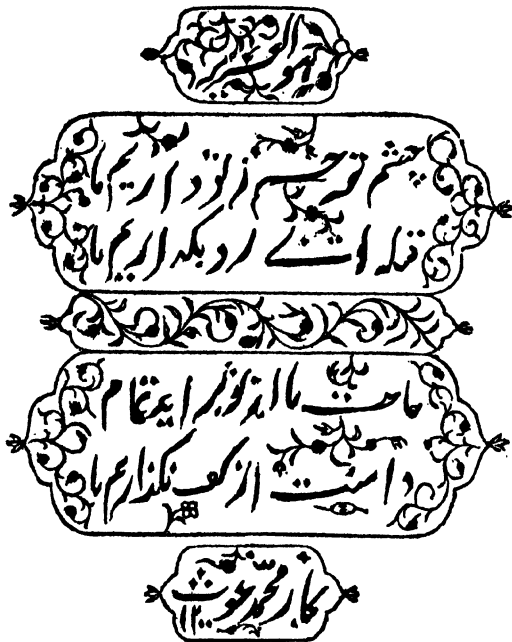 هو
چشم ترحم ز تو داریم ما
قبله توئی رو بکه اریم ما
حاجت ما از تو براید تمام
دامنت از کف نگذاریم ما
کار محمد غوث
۱۲۰۰